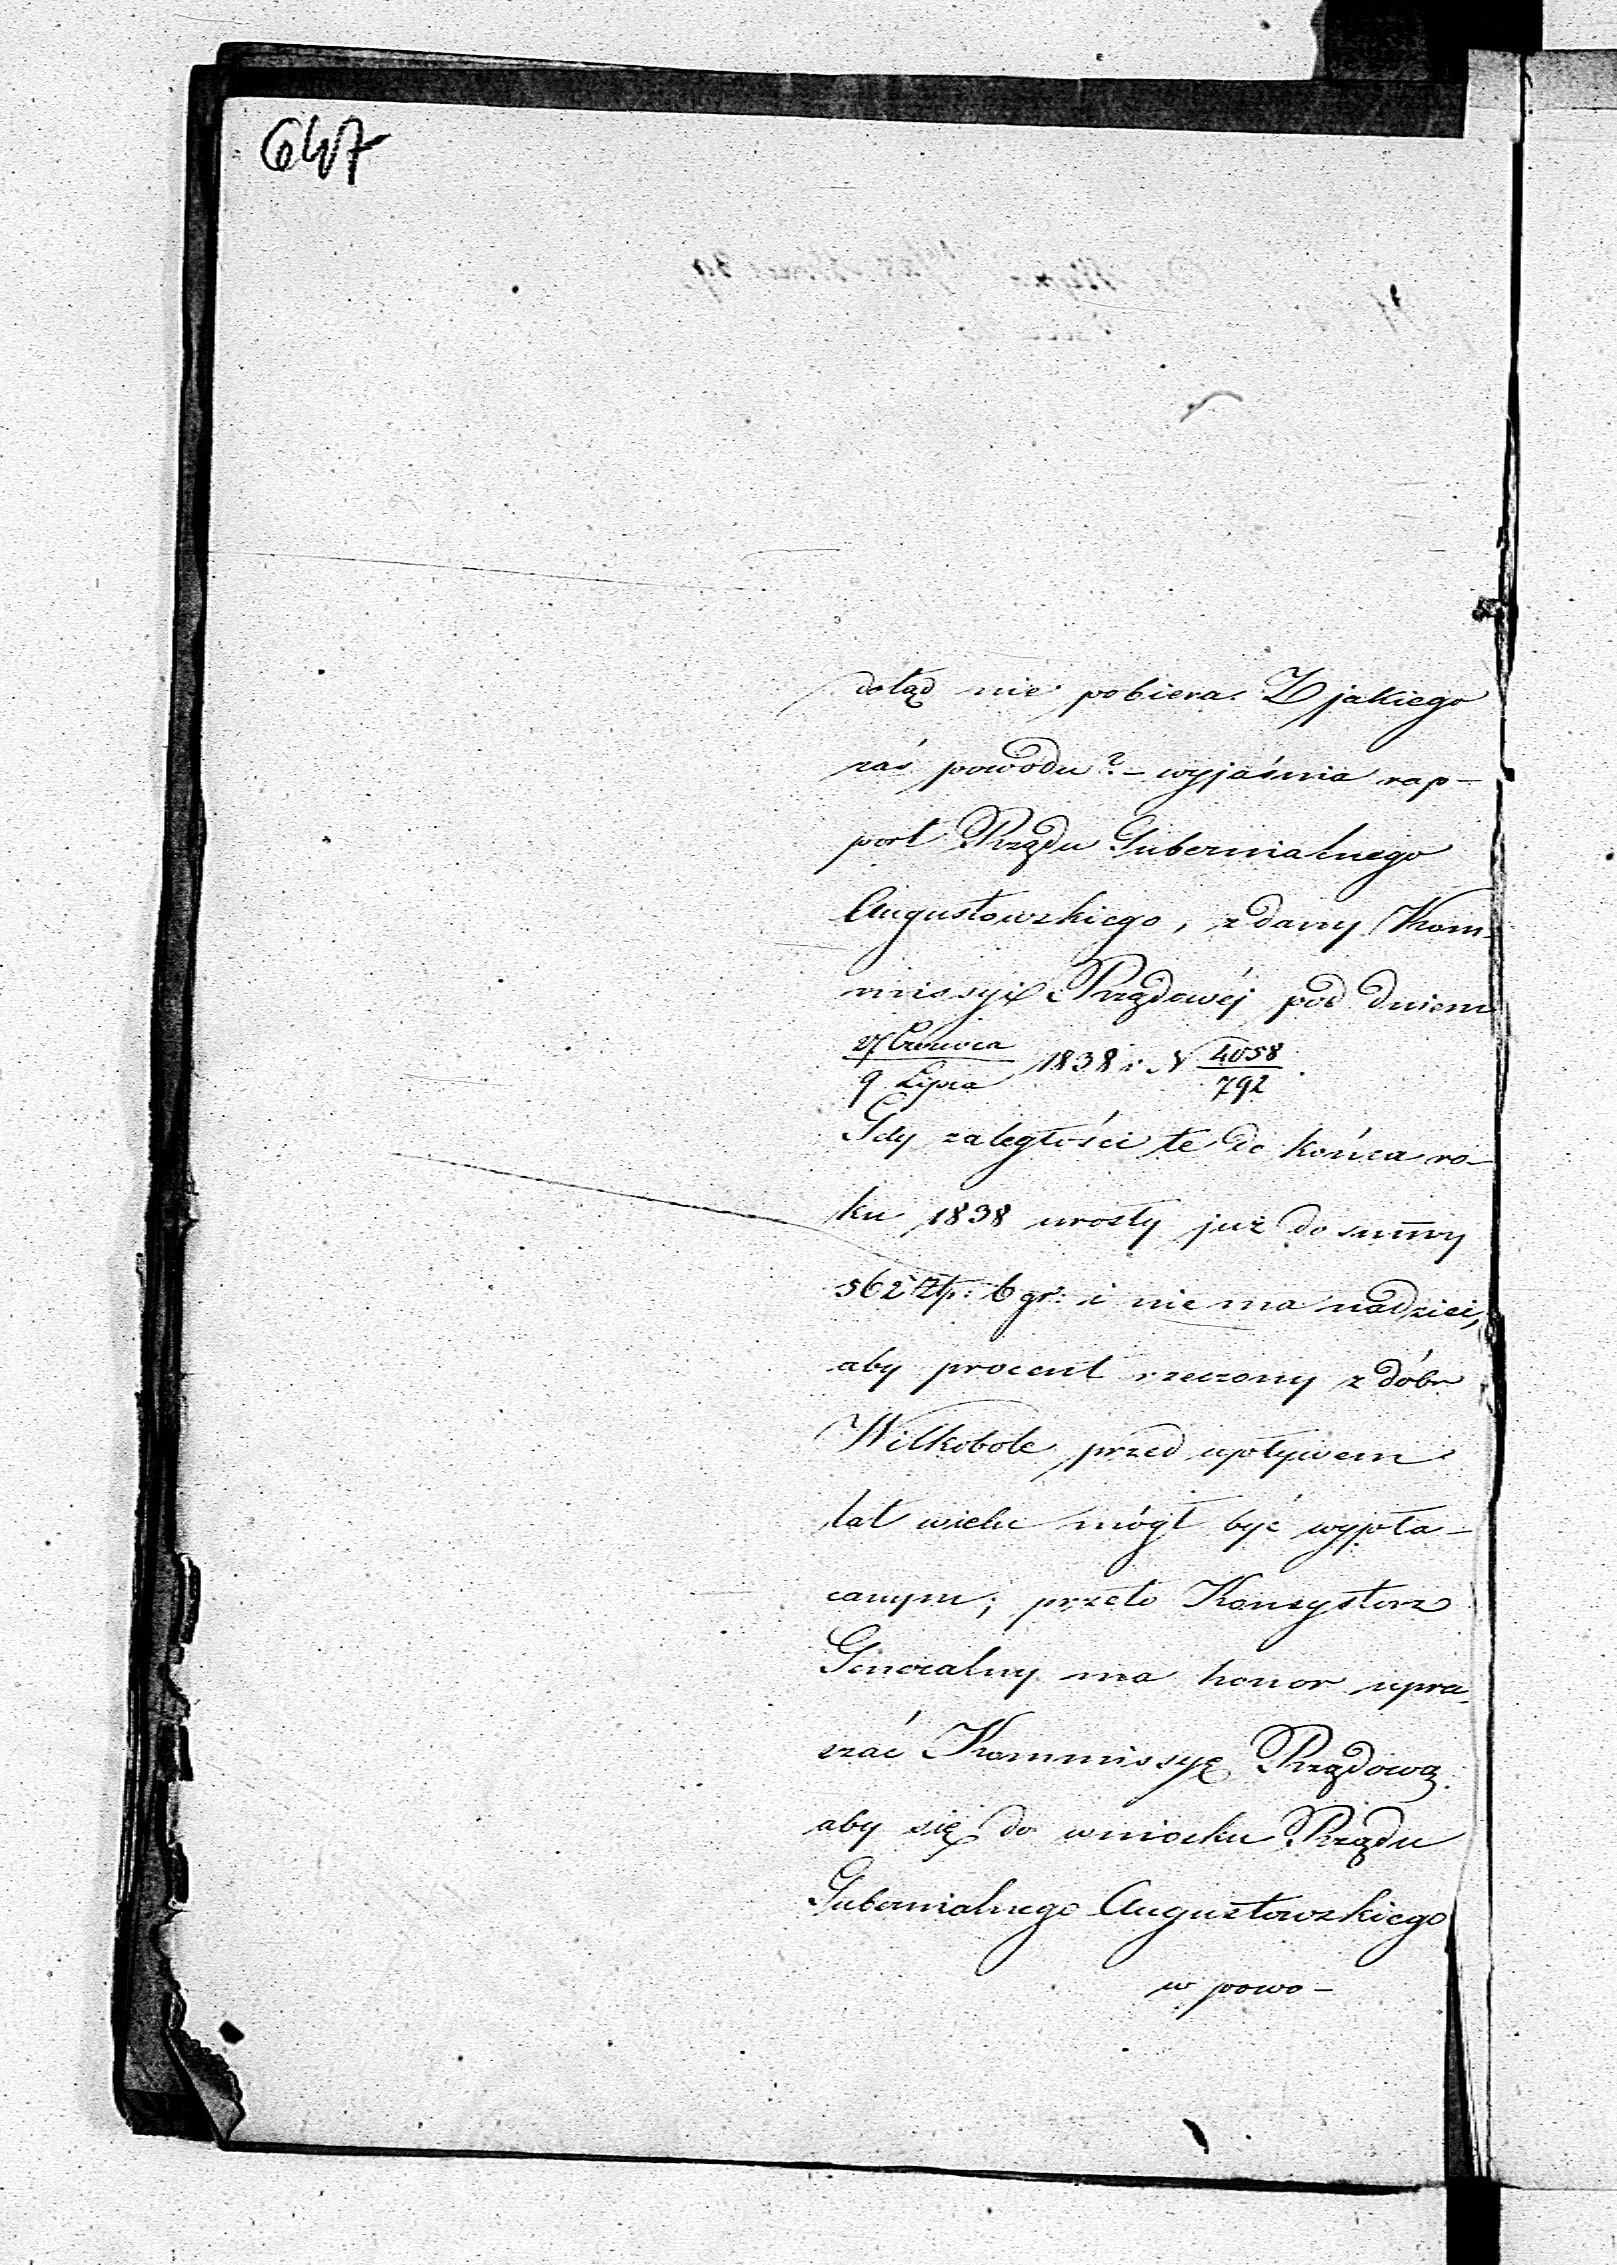 647
dotąd nie pobiera. Z jakiego
zaś powodu? – wyjaśnia rap–
port Rządu Gubernialnego
Augustowskiego, zdany Kom–
missyi Rządowéj pod dniem
27 Czerwca / 9 Lipca 1838 r. N 4058 / 792.
Gdy zaległości te do końca ro–
ku 1838 urosły już do summy
562 Złp: 6 gr: i nie ma nadziei,
aby procent rzeczony z dóbr
Wilkobole przed upływem
lat wielu mógł być wypła–
canym; przeto Konsystorz
Generalny ma honor upra–
szać Kommissyę Rządową
aby się do wniosku Rządu
Gubernialnego Augustowskiego
w powo–